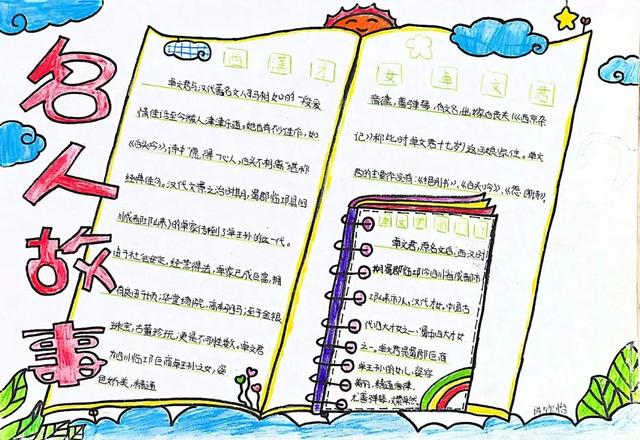 名人故事
西汉才
女卓文君
卓文君与汉代著名文人司马相如的一段爱
情佳话至今被人津津乐道。她也有不少佳作，如
《白头吟》，诗中"愿得一心人，白头不相离"堪称
经典佳句。汉代文景之治时期，蜀郡临邛县(四
川成都邛崃)的卓家传到了卓王孙的这一代。
由于社会安定，经营得法，卓家已成巨富，拥
有良田千顷；华堂绮院，高车驷马；至于金银
珠宝，古董珍玩，更是不可胜数。卓文君
为四川临邛巨商卓王孙之女，姿
色娇美，精通
音律，善弹琴，有文名，出嫁后丧夫(《西京杂
记》称此时卓文君十七岁)返回娘家住。卓文
君的主要作品有：《诀别书》、《白头吟》、《怨郎诗》
卓文君
卓文君，原名文后，西汉时
期蜀郡临邛今四川省成都市
邛崃市人，汉代才女。中国古
代四大才女之一、蜀中四大才女
之一。卓文君是蜀郡巨商
卓王孙的女儿，姿容
美丽，精通音律，
尤善弹琴，